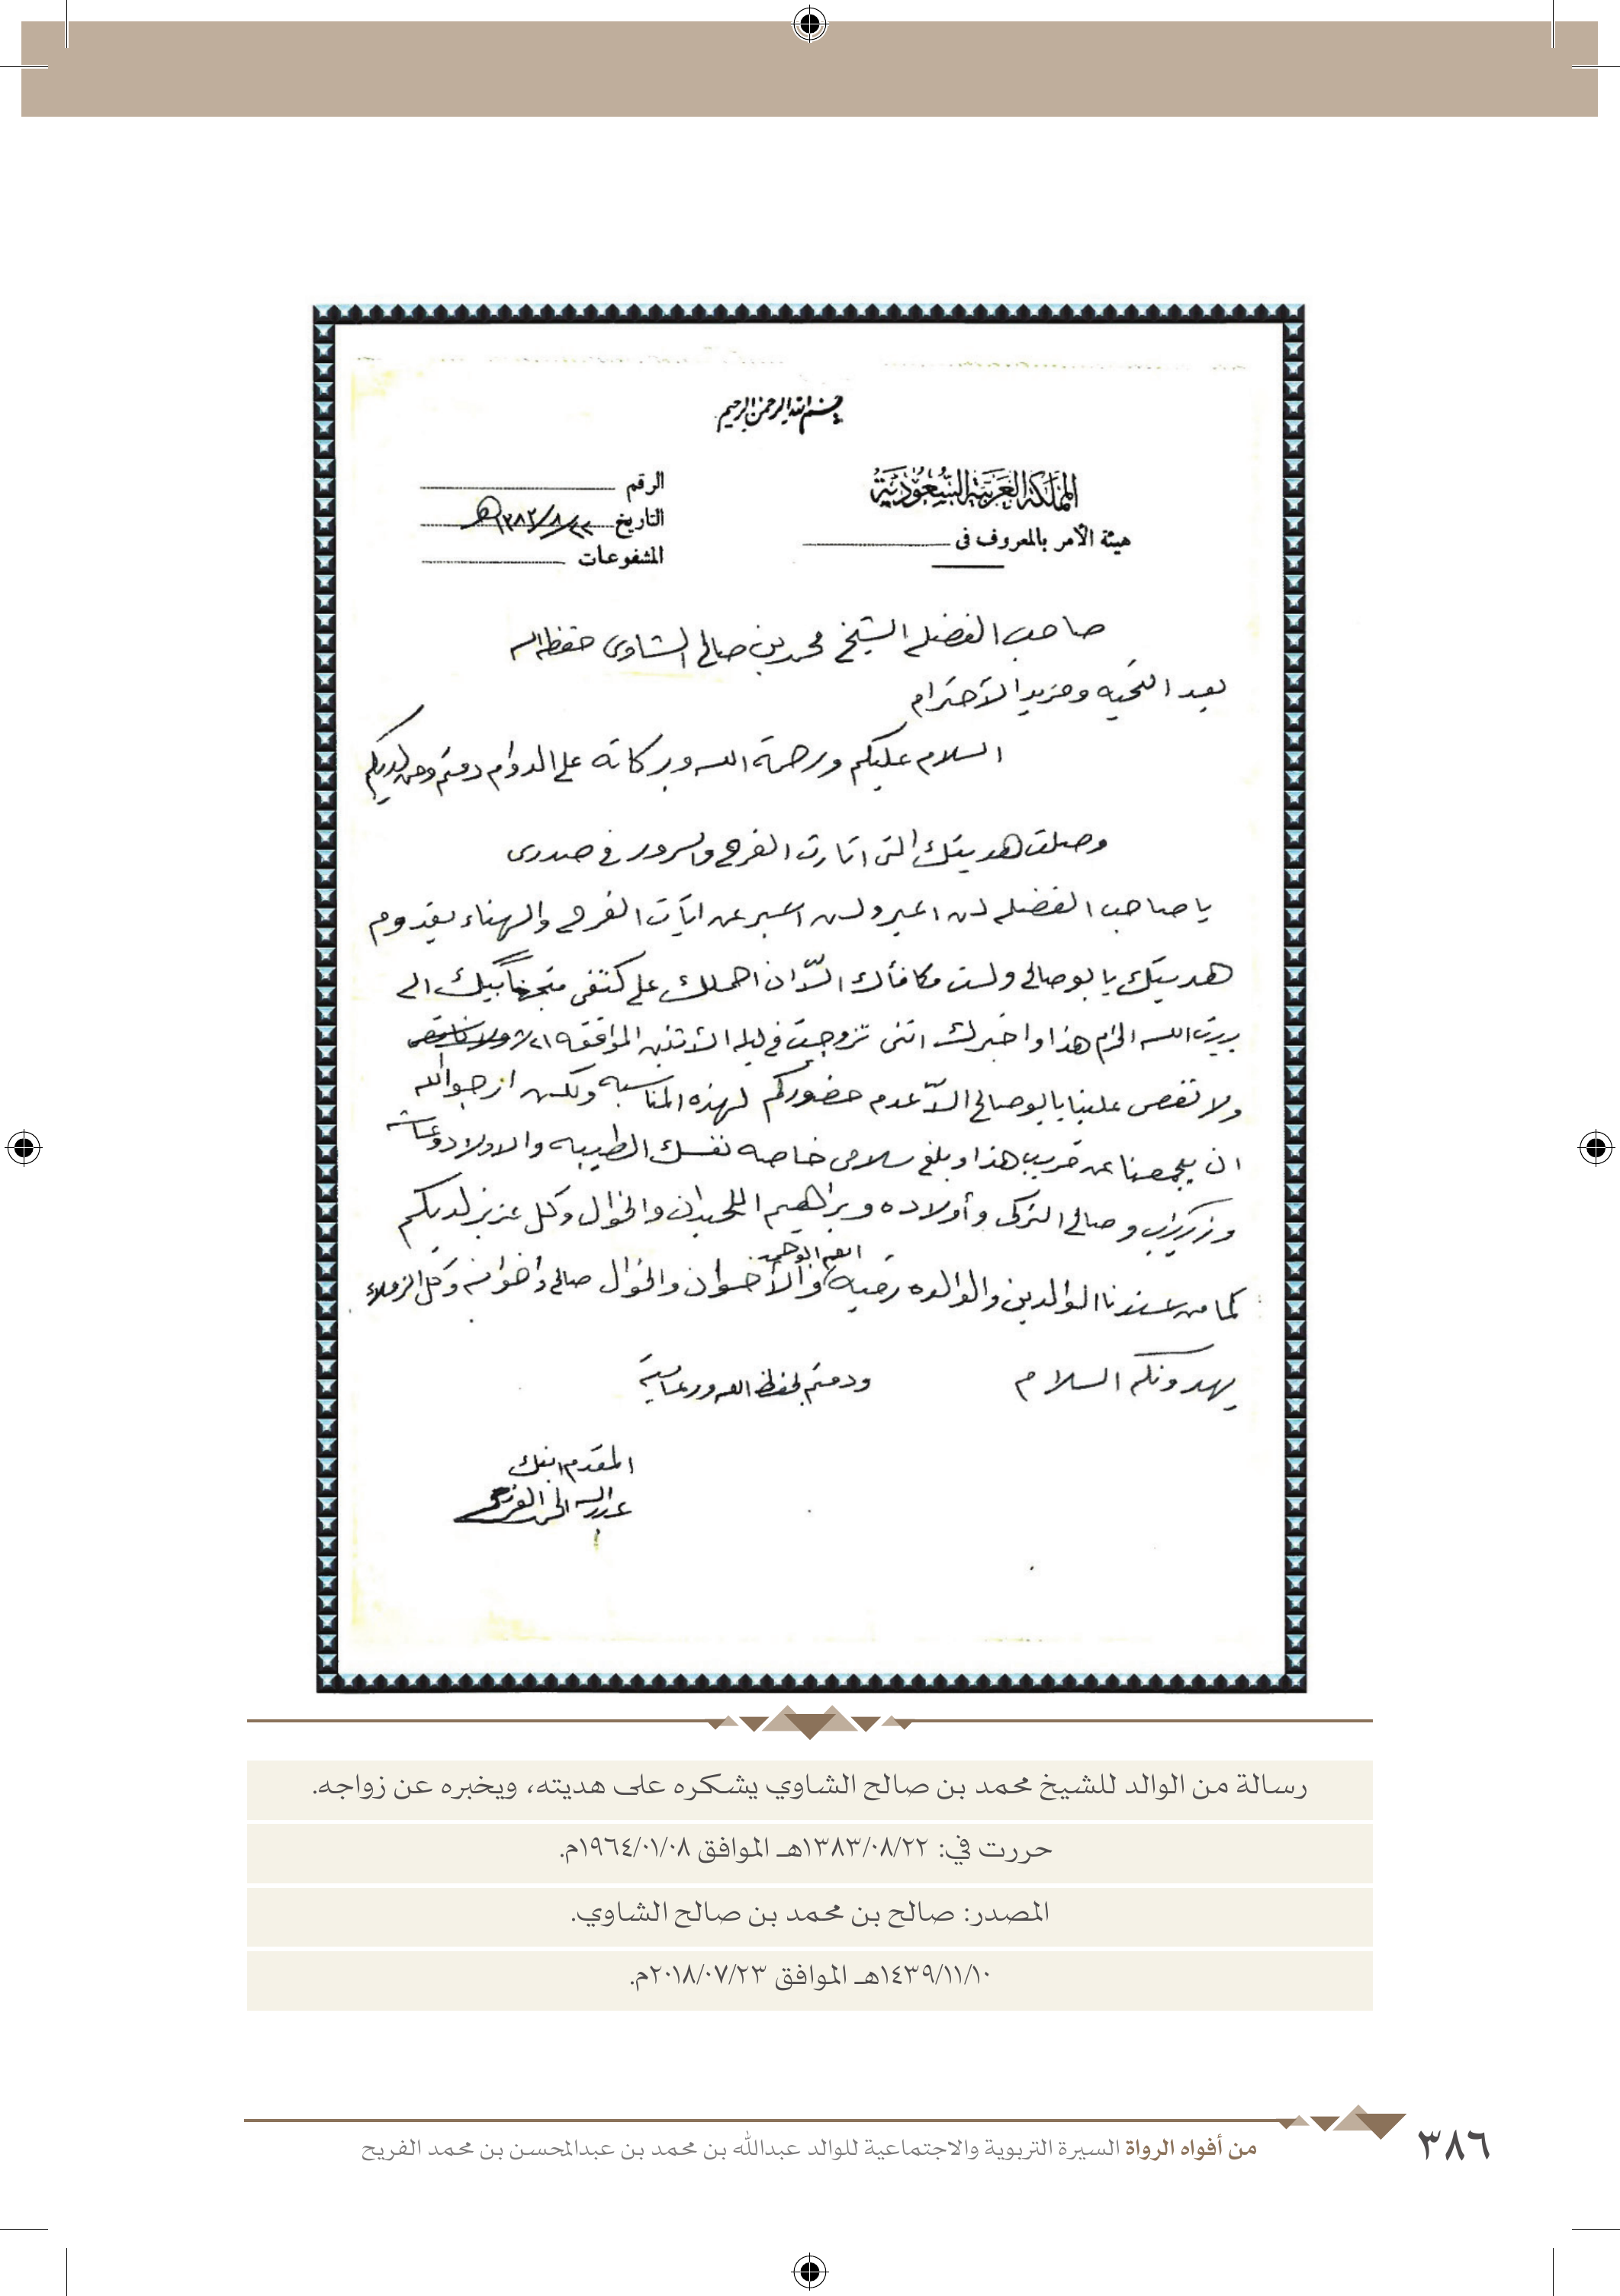 بسم الله الرحمن الرحيم
المملكة العربية السعودية
هيئة الأمر بالمعروف فى
الرقم
التاريخ ٢٢/٨/١٣٨٣هـ
المشفوعات
صاحب الفضله الشيخ محمد بن صالح الشاوى حفظه الله
بعد التحيه ومزيد الأحترام
السلام عليكم ورحمة الله وبركاته على الدوام دمتم ومن لديكم
وصلت هديتك التى اثارت الفرح والسرور في صدرى
يا صاحب الفضله لن اعبر ولن اعبر عن ايآت الفرح والهناء بقدوم
هديتك يا بو صالح ولست مكافأك الآ ان احملك على كتفى متجهاً بيك الى
بيت الله الحرام هذا واخبرك اننى تزوجت في ليلة الأثنين الموافقه ٢١/٨
ولا نقص علينا يا بو صالح الآ عدم حضوركم لهذه المناسبه ولكن ارجو الله
ان يجمعنا عن قريب هذا وبلغ سلامى خاصه نفسك الطيبه والاولاد
وصالح التركى وأولاده وبراهيم اللحيدان والخوال وكل عزيز لديكم
كما من عندنا الوالدين والوالده رقيه والأخوان والخوال صالح واخوانه وكل الزملاء
يهدونكم السلام ودمتم بحفظ الله ورعايته
المقدم ابنك
عبدالله المحسن الفريح
رسالة من الوالد للشيخ محمد بن صالح الشاوي يشكره على هديته، ويخبره عن زواجه.
حررت في: ١٣٨٣/٠٨/٢٢هـ الموافق ١٩٦٤/٠١/٠٨م.
المصدر: صالح بن محمد بن صالح الشاوي.
١٤٣٩/١١/١٠هـ الموافق ٢٠١٨/٠٧/٢٣م.
من أفواه الرواة السيرة التربوية والاجتماعية للوالد عبدالله بن محمد بن عبدالمحسن بن محمد الفريح
٣٨٦